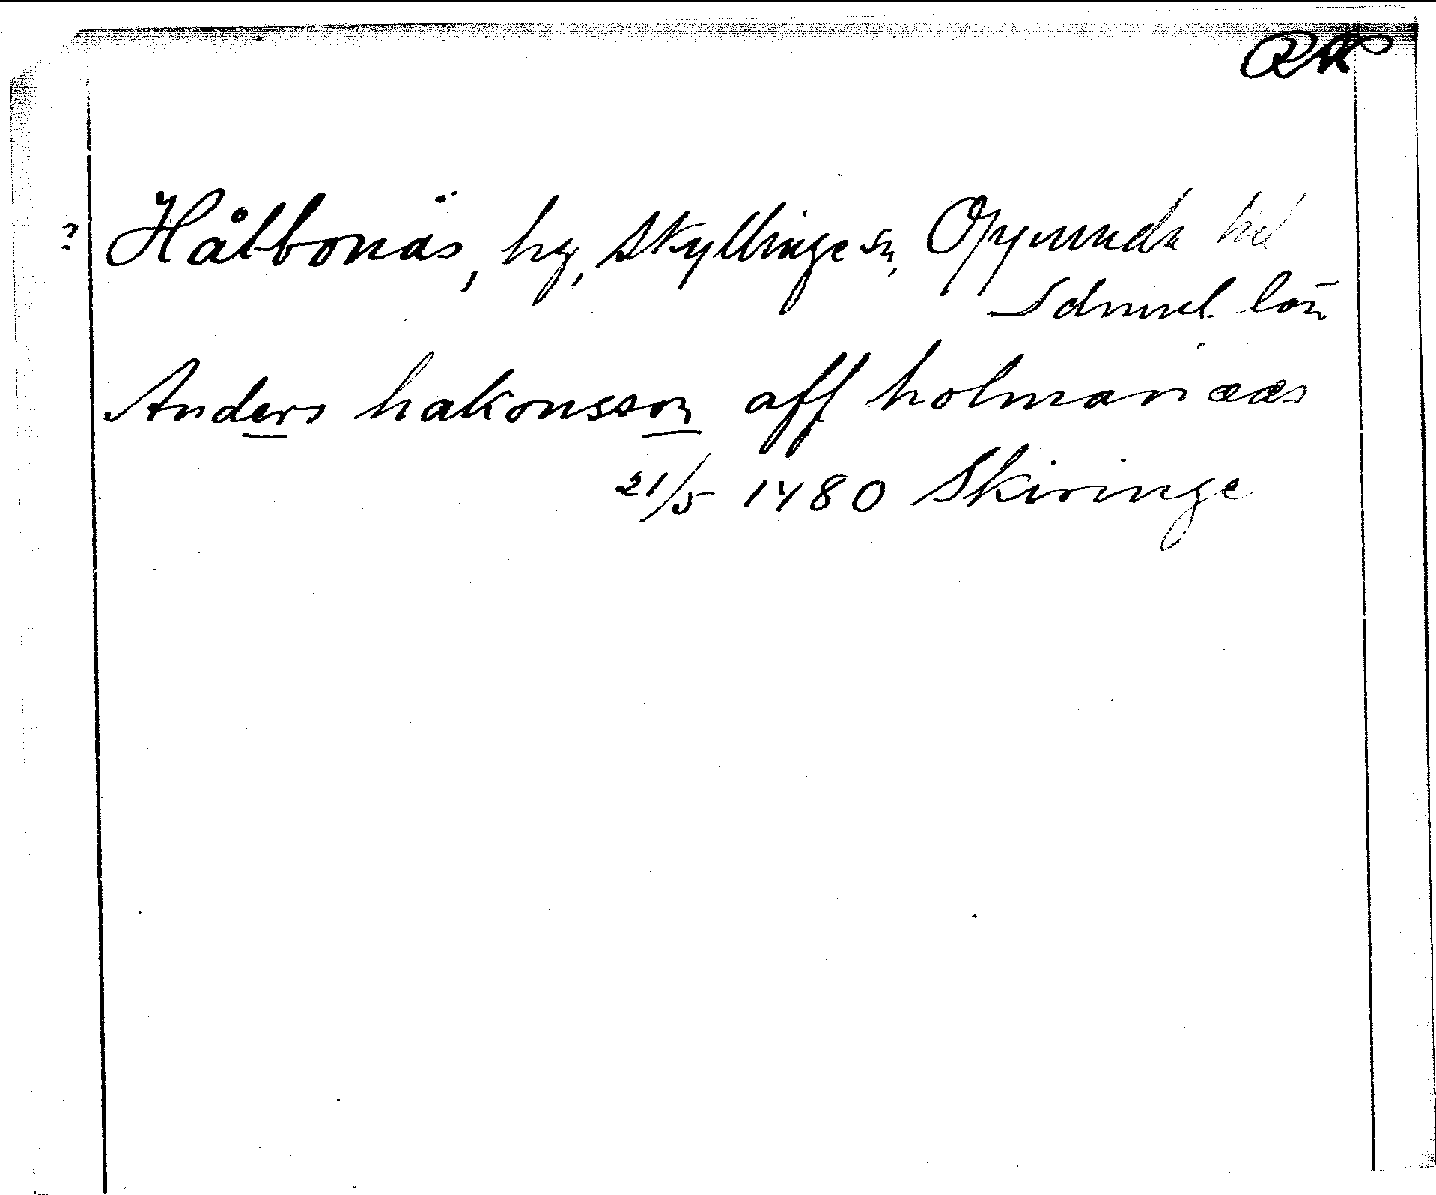 ? Hålbonäs, hg, Skyllinge sn, Oppunda hd
Södml. län
Anders hakonsson aff holmanæs
21/5 1480 Skiringe